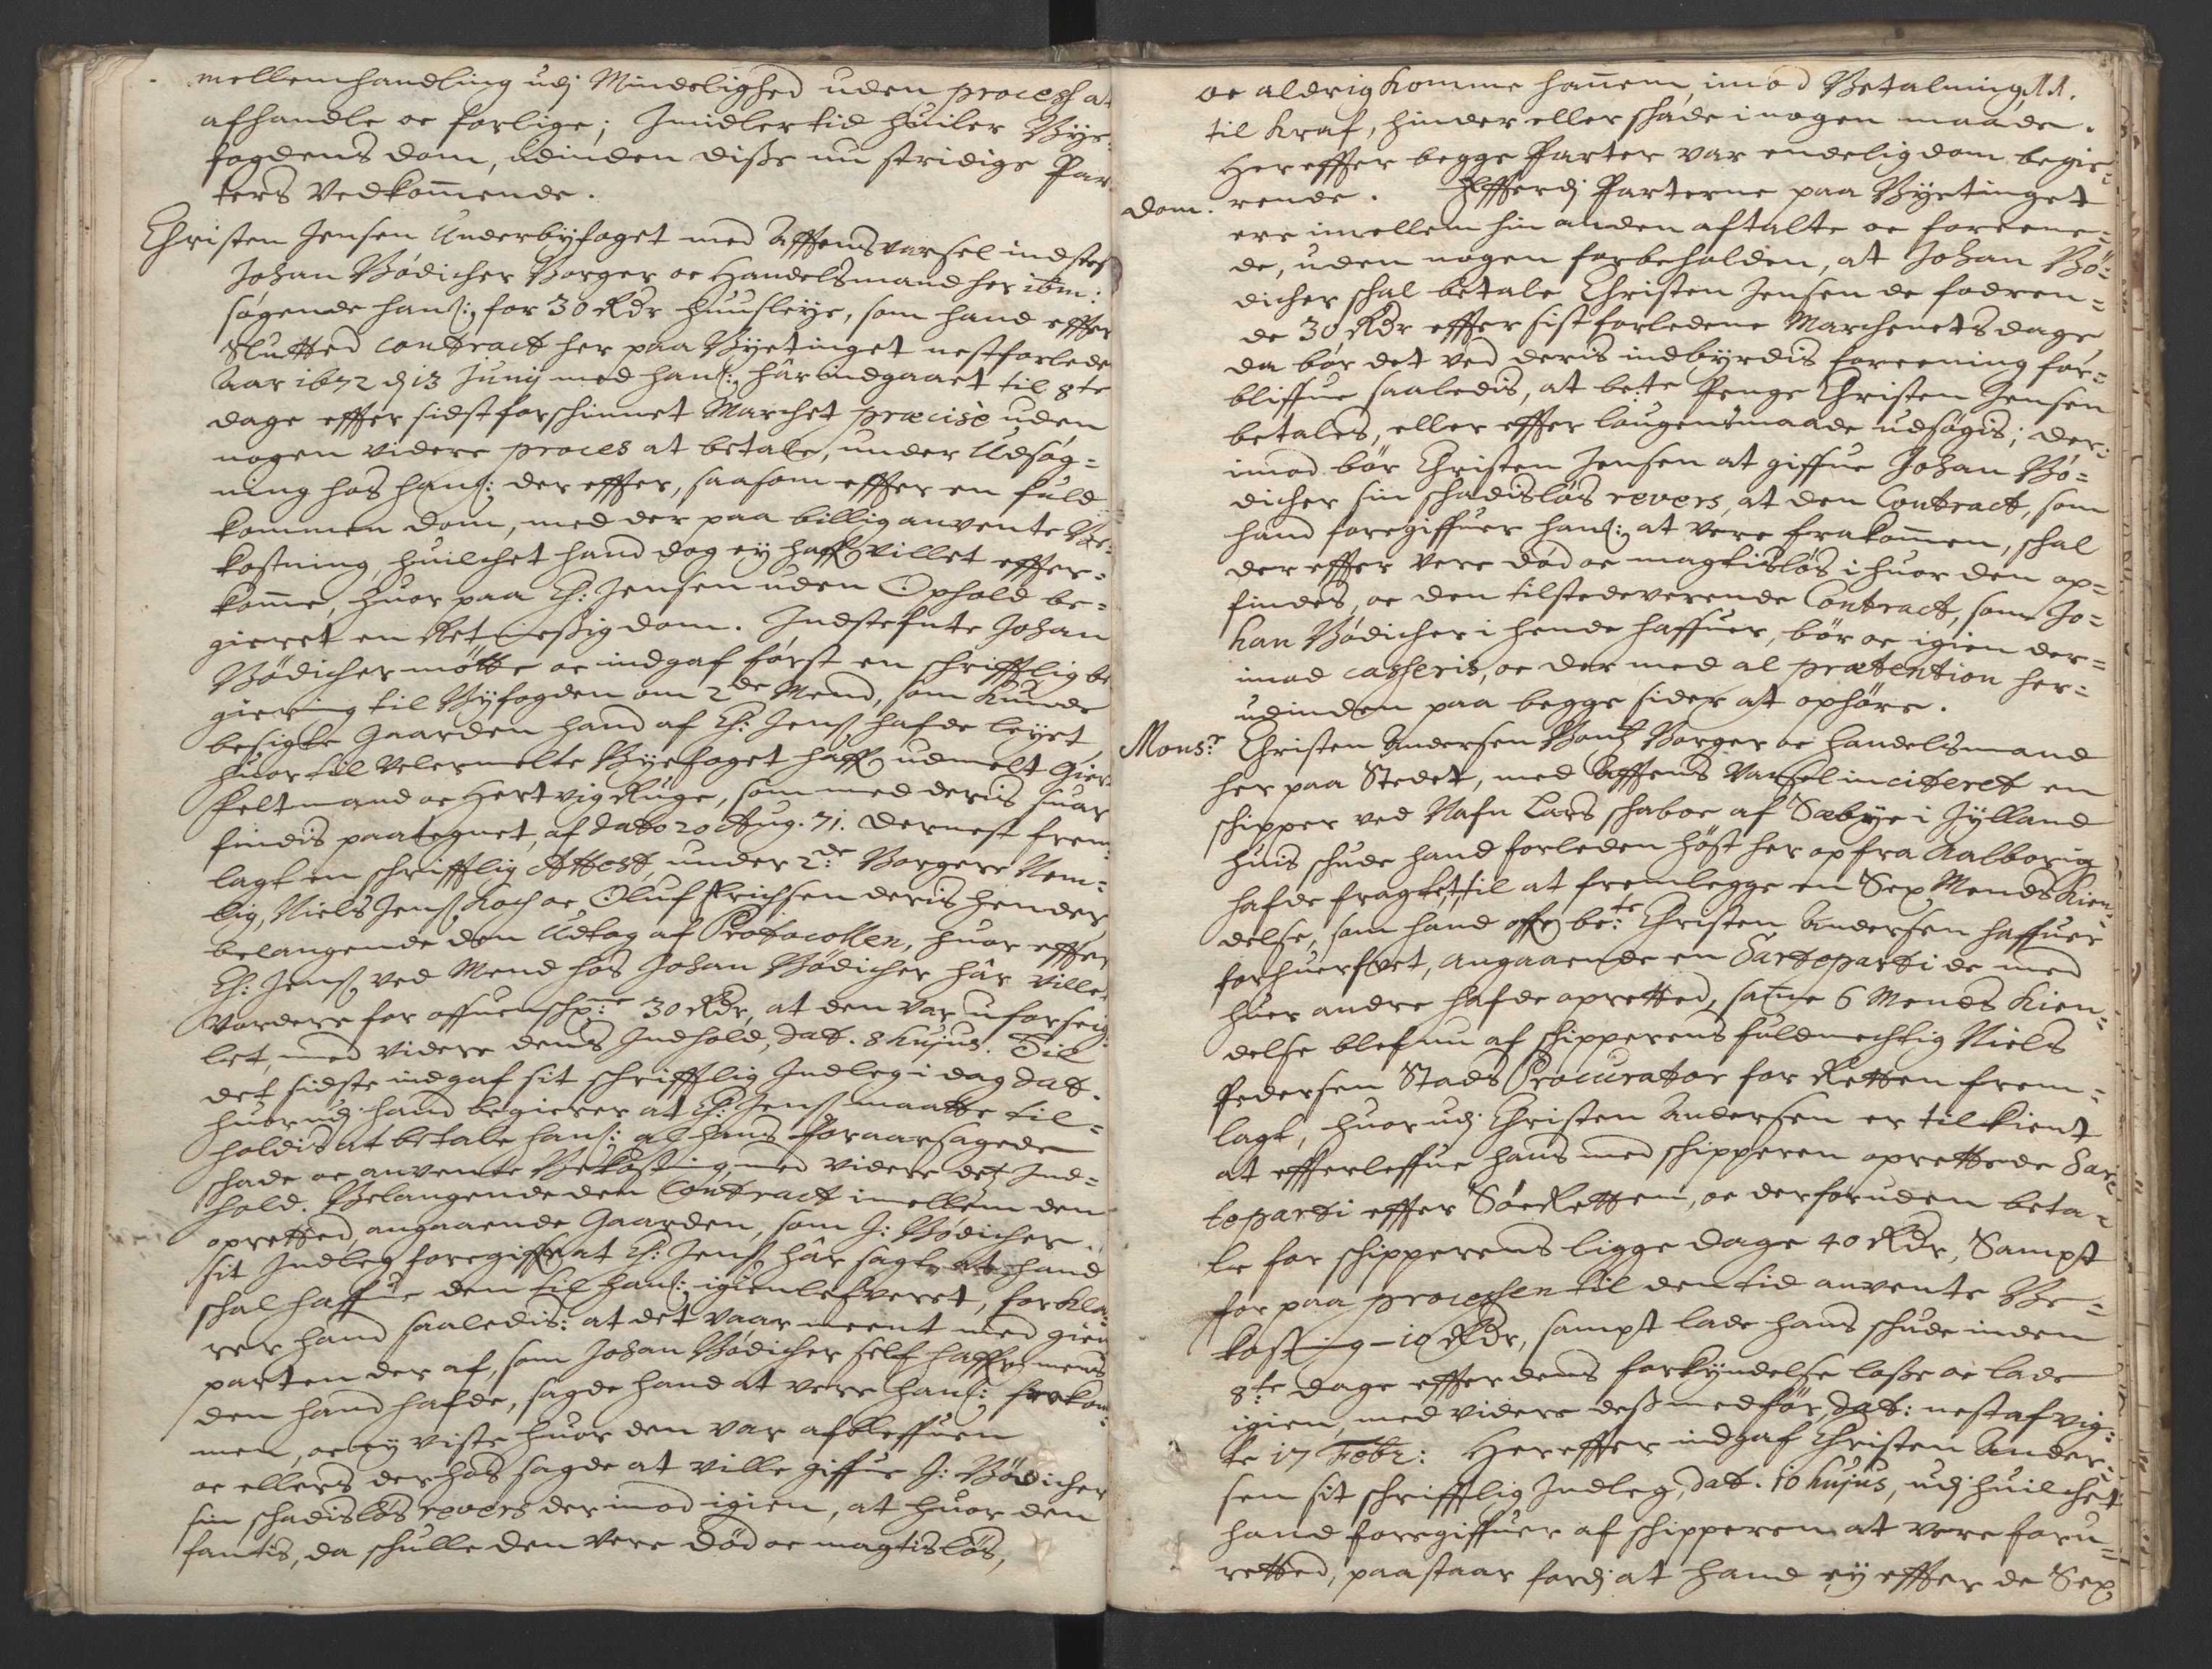 mellemhandling udj Mindelighed uden process at
afhandle oc forlige; Imidlertid huiler Bye-
fogdens dom, udinden disse nu stridige Par-
ters Vedkom̄ende.
Christen Jensen Underbyfoget med Afftens varsel indstef
Johan Bødicher Borger oc Handelsmand her ibm:
søgende han: for 30 Rdr huusleye, som hand effter
Slutted contract her paa Byetinget nestforleden
Aar 1672 d 13 Junij med han: hâr indgaaet til 8te
dage effter sidstforschinnet Marchet præcisè uden
nogen videre proces at betale, under Udsøg-
ning hos han: der effter, saasom effter en fuld-
kommen dom, med der paa billig anvente Be-
kostning, huilchet hand dog ey haffr villet effter-
kom̄e, huor paa Ch: Jensen uden Ophold be-
gieret en Retmessig dom. Indstefnte Johan
Bødicher møtte oc indgaf først en schrifftlig be-
giering til Byfogden om 2de Mend, som kunde
besigte Gaarden hand af Ch: Jens: hafde leyet
huor til Velermelte Byefoget haffr udmelt Gier
Feltmand oc Hertvig Rüge, som med deris suar
findis paategnet, af dato 20 Aug. 71. Dernest frem-
lagt en schrifftlig Attest, under 2de Borgere Nem-
lig, Niels Jens: Koch oc Oluf Erichsen deris hender
belangende den Udtog af Protocollen, huor effter
Ch: Jens: ved Mend hos Johan Bødicher hâr villet
vordere for offuenschr:ne 30 Rdr, at den var uforseig-
let, med videre dens Indhold, dat. 8 hujus. Til
det sidste indgaf sit schrifftlig Indleg i dag dat.
huorudj hand begierer at Ch: Jens: maatte til-
holdis at betale han: al hans foraarsagede
schade oc anvente Bekostning, med videre detz Ind-
hold. Belangende den Contract imellem dem
opretted, angaaende Gaarden, som J: Bødicher i
sit Indleg foregiffr at Ch: Jens: hâr sagt at hand
schal haffue den til han: igienlefveret, forkla-
rer hand saaledis: at det vaar meent med gien
parten der af, som Johan Bødicher self haffr, mens
den hand hafde, sagde hand at vere han: frakom-
men, oc ey viste huor den var afbleffuen
oc ellers derhos sagde at ville giffue J: Bødicher
sin schadisløs revers der imod igien, at huor den
fantis, da schulle den vere død oc magtisløs,
oc aldrig komme han̄em imod Betalning
til Kraf, hinder eller schade i nogen maade.
Hereffter begge Parter var endelig dom begie-
dom. rende. Effterdj Parterne paa Byetinget
ere imellem hin anden aftalte oc foreene-
de, uden nogen forbeholden, at Johan Bø-
dicher schal betale Christen Jensen de fodren-
de 30 Rdr effter sist forledene Marchenets dage
da bør det ved deris indbyrdis foreening for-
bliffue saaledis, at be:te Penge Christen Jensen
betales, eller effter Lougens maade udsøgis; der-
imod bør Christen Jensen at giffue Johan Bø-
dicher sin schadisløs revers, at den Contract, som
hand foregiffuer han: at vere frakom̄en, schal
der effter vere død oc magtisløs i huor den op-
findes, oc den tilstedeverende Contract, som Jo-
han Bødicher i hende haffuer, bør oc igien der-
imod casseris, oc der med al prætention her-
udinden paa begge sider at ophøre.
Mons:r Christen Andersen Bentz Borger oc Handelsmand
her paa Stedet, med Afftens Varsel inciteret en
schipper ved Nafn Lars schaboe af Sæbye i Jylland
huis schude hand forleden høst her op fra Aalborrig
hafde fragtet, til at fremlegge en Sex Mends Kien-
delse, som hand offr be:te Christen Andersen haffuer
forhuerfvet, angaaende en Certeparti de med
huer andre hafde opretted, samme 6 Mends Kien-
delse blef nu af schipperens fuldmechtig Niels
Pedersen Stads Procurator for Retten frem-
lagt, huorudj Christen Andersen er tilkient
at effterleffue hans med schipperen oprettede Cer-
teparti effter Søe Retten, oc derforuden beta-
le for schipperens ligge dage 40 Rdr, Sampt
for paa processen til den tid anvente Be-
kostning - 10 Rdr, sampt lade hans schude inden
8:te dage effter dens forkyndelse losse oc lade
igien, med videre dess medfør, dat: nest afvig-
te 17 Febr: Hereffter indgaf Christen Ander-
sen sit schrifftlig Indleg, dat. 10 hujus, udj huilchet
hand foregiffuer af schipperen at vere foru-
retted, paastaar fordj at hand ey effter de Sex